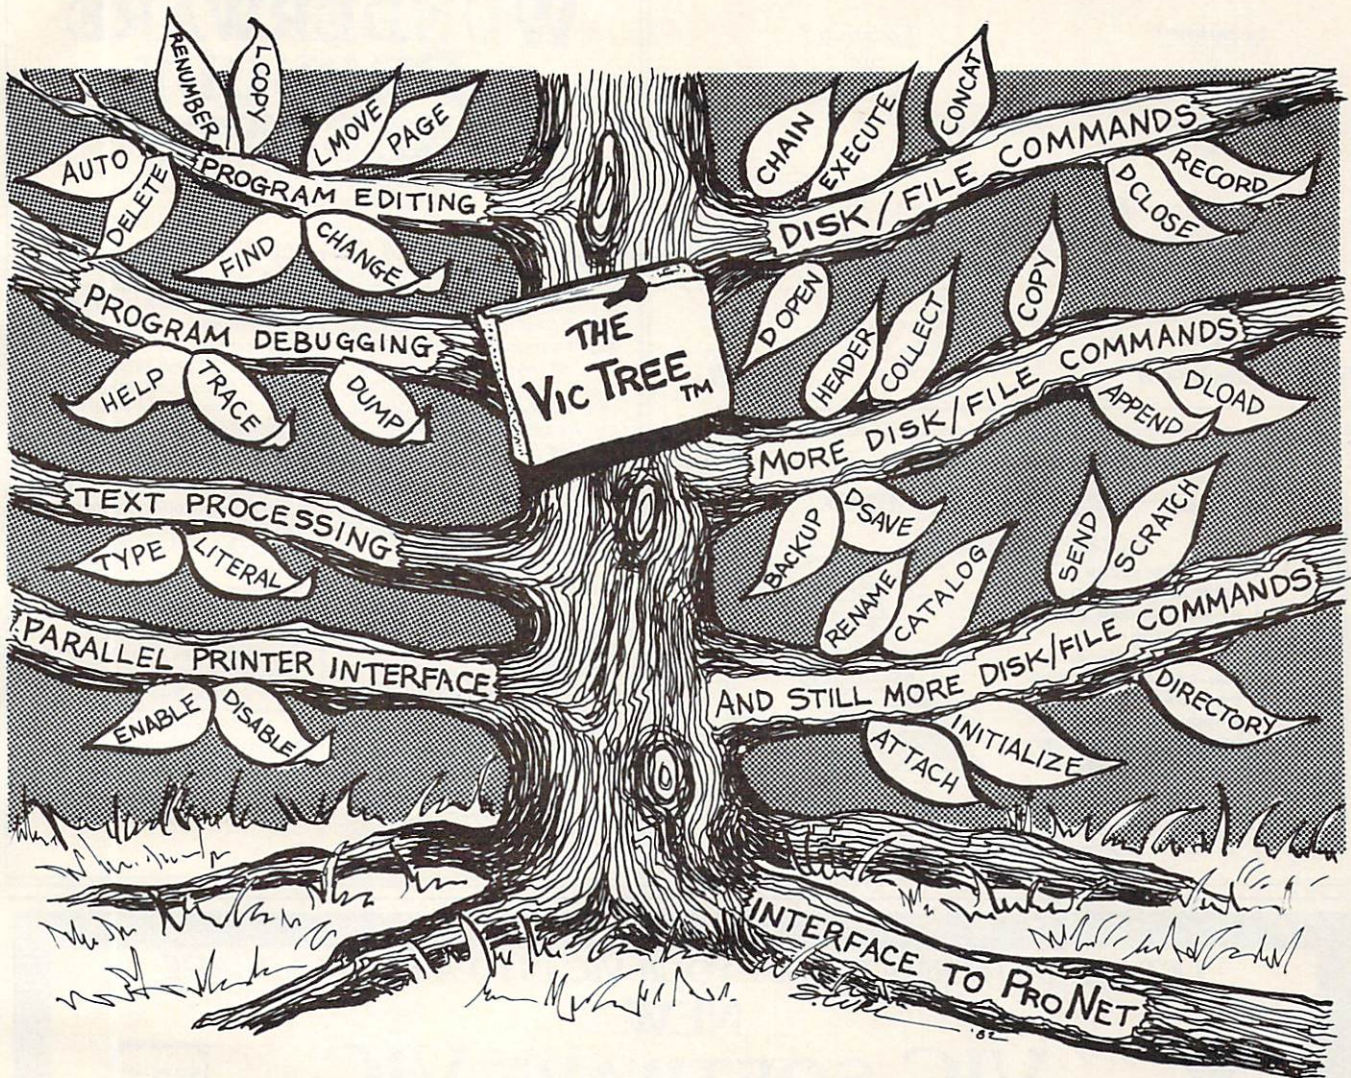 RENUMBER
LCOPY
LMOVE
PAGE
AUTO
DELETE
PROGRAM EDITING
FIND
CHANGE
PROGRAM DEBUGGING
HELP
TRACE
DUMP
TEXT PROCESSING
TYPE
LITERAL
PARALLEL PRINTER INTERFACE
ENABLE
DISABLE
THE
VIC TREE TM
CHAIN
EXECUTE
CONCAT
DISK/FILE COMMANDS
DCLOSE
RECORD
DOPEN
HEADER
COLLECT
COPY
MORE DISK/FILE COMMANDS
APPEND
DLOAD
BACKUP
DSAVE
RENAME
CATALOG
SEND
SCRATCH
AND STILL MORE DISK/FILE COMMANDS
ATTACH
INITIALIZE
DIRECTORY
INTERFACE TO PRONET
'82